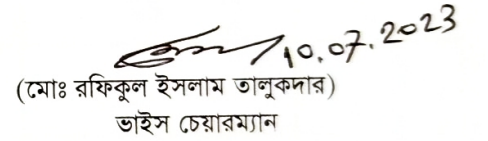 10.07.2023
(মোঃ রফিকুল ইসলাম তালুকদার)
ভাইস চেয়ারম্যান